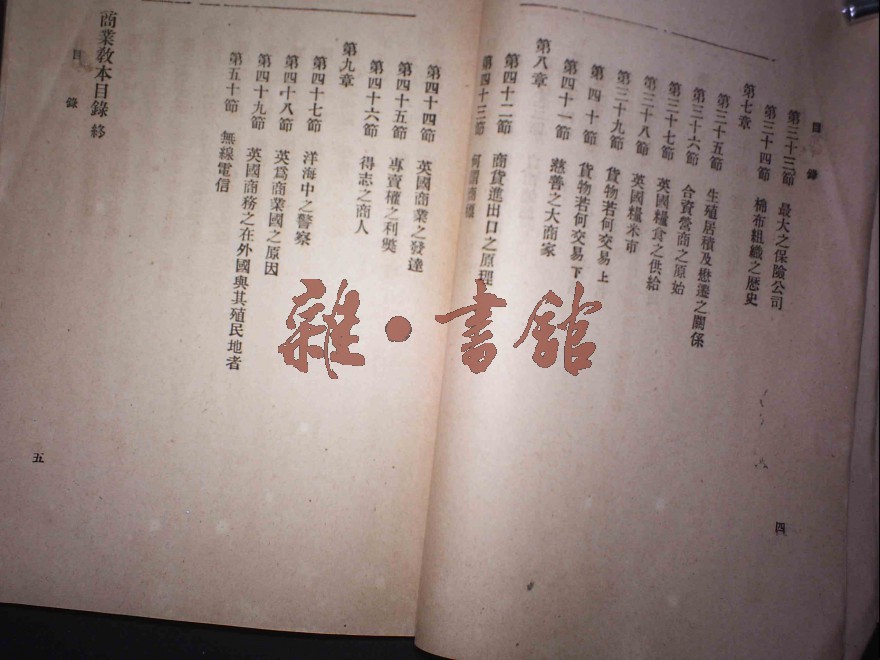 目錄
第三十三節 最大之保險公司
第三十四節 棉布組織之歷史
第七章
第三十五節 生殖居積及懋遷之關係
第三十六節 合資營商之原始
第三十七節 英國糧食之供給
第三十八節 英國糧米市
第三十九節 貨物若何交易上
第四十節 貨物若何交易下
第四十一節 慈善之大商家
第八章
第四十二節 商貨進出口之原理
第四十三節 何謂商
四
第四十四節 英國商業之發達
第四十五節 專賣權之利弊
第四十六節 得志之商人
第九章
第四十七節 洋海中之警察
第四十八節 英爲商業國之原因
第四十九節 英國商務之在外國與其殖民地者
第五十節 無線電信
商業教本目錄終
目錄
五
雜·書館